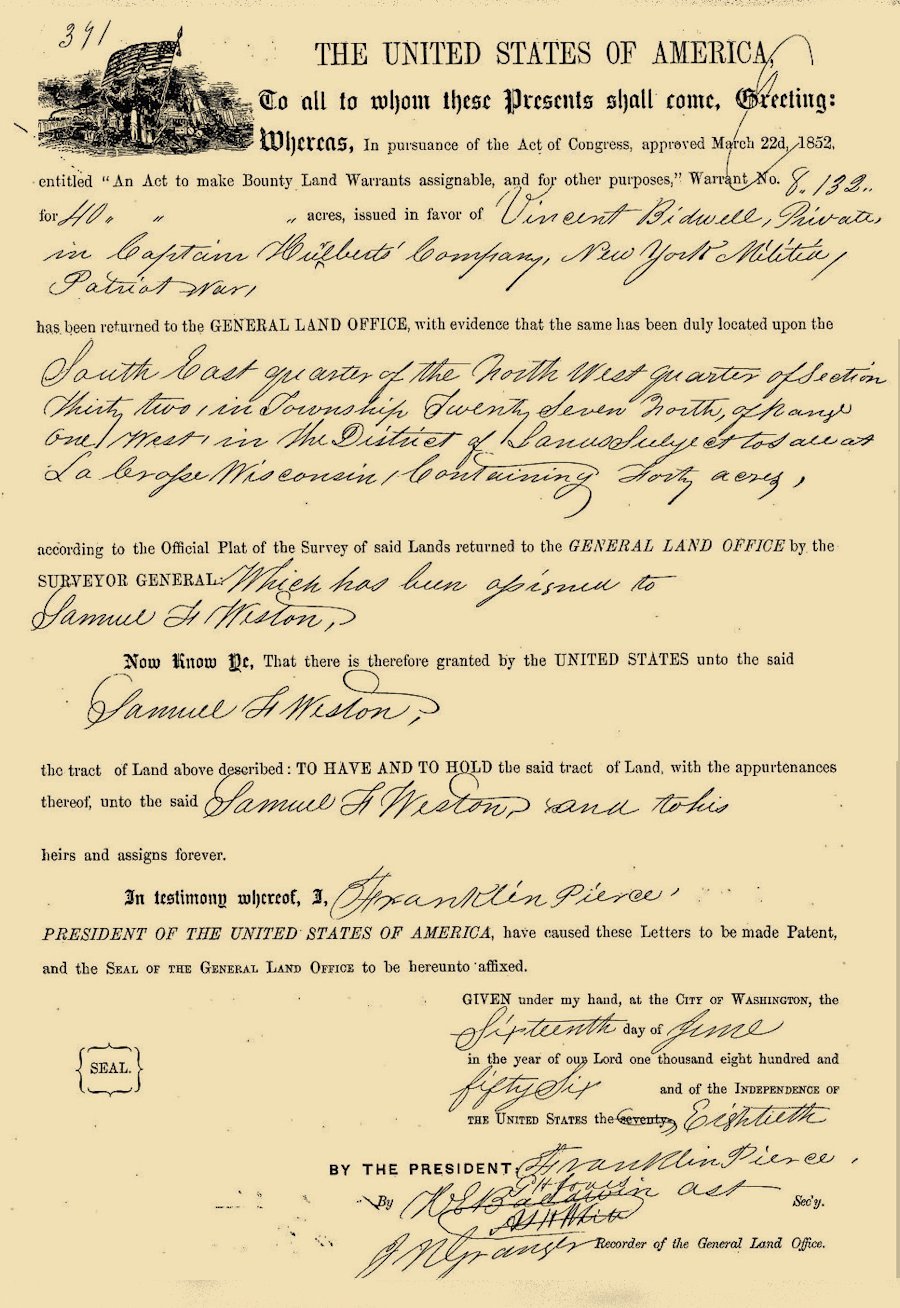 391
THE UNITED STATES OF AMERICA,
To all to whom these Presents shall come, Greeting:
Whereas, In pursuance of the Act of Congress, approved March 22d, 1852,
entitled "An Act to make Bounty Land Warrants assignable, and for other purposes," Warrant No. 8,132,
for 40 " " " acres, issued in favor of Vincent Bidwell, Private,
in Captain Hulberts' Company, New York Militia,
Patriot War,
has been returned to the GENERAL LAND OFFICE, with evidence that the same has been duly located upon the
South East quarter of the North West quarter of Section
thirty two, in Township Twenty Seven North, of Range
One, West, in the District of Lands Subject to Sale at
La Crosse Wisconsin, Containing Forty acres,
according to the Official Plat of the Survey of said Lands returned to the GENERAL LAND OFFICE by the
SURVEYOR GENERAL: Which has been assigned to
Samuel F Weston,
Now Know Ye, That there is therefore granted by the UNITED STATES unto the said
Samuel F Weston,
the tract of Land above described: TO HAVE AND TO HOLD the said tract of Land, with the appurtenances
thereof, unto the said Samuel F Weston, and to his
heirs and assigns forever.
In testimony whereof, I, Franklin Pierce,
PRESIDENT OF THE UNITED STATES OF AMERICA, have caused these Letters to be made Patent,
and the SEAL OF THE GENERAL LAND OFFICE to be hereunto affixed.
GIVEN under my hand, at the CITY OF WASHINGTON, the
Sixteenth day of June
in the year of our Lord one thousand eight hundred and
fifty Six and of the INDEPENDENCE OF
SEAL.
THE UNITED STATES the seventy- Eightieth
BY THE PRESIDENT: Franklin Pierce,
By H E Baldwin ast Sec'y.
J N Granger Recorder of the General Land Office.